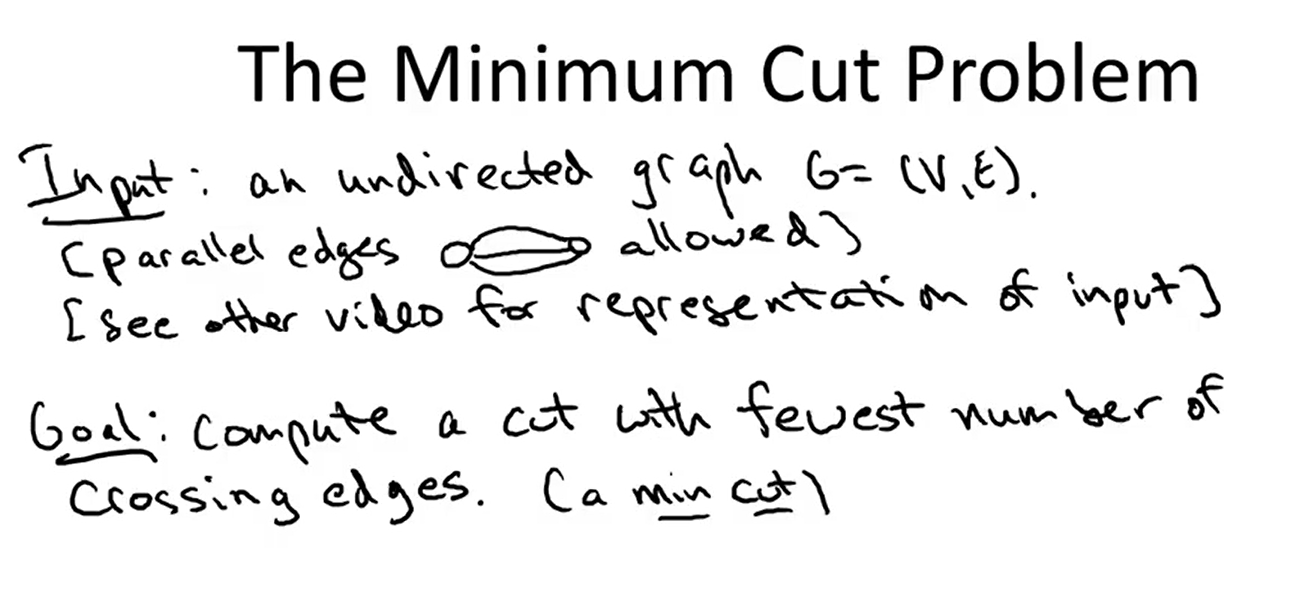 The Minimum Cut Problem
Input: an undirected graph G= (V,E).
[parallel edges allowed]
[see other video for representation of input]
Goal: compute a cut with fewest number of
crossing edges. (a min cut)